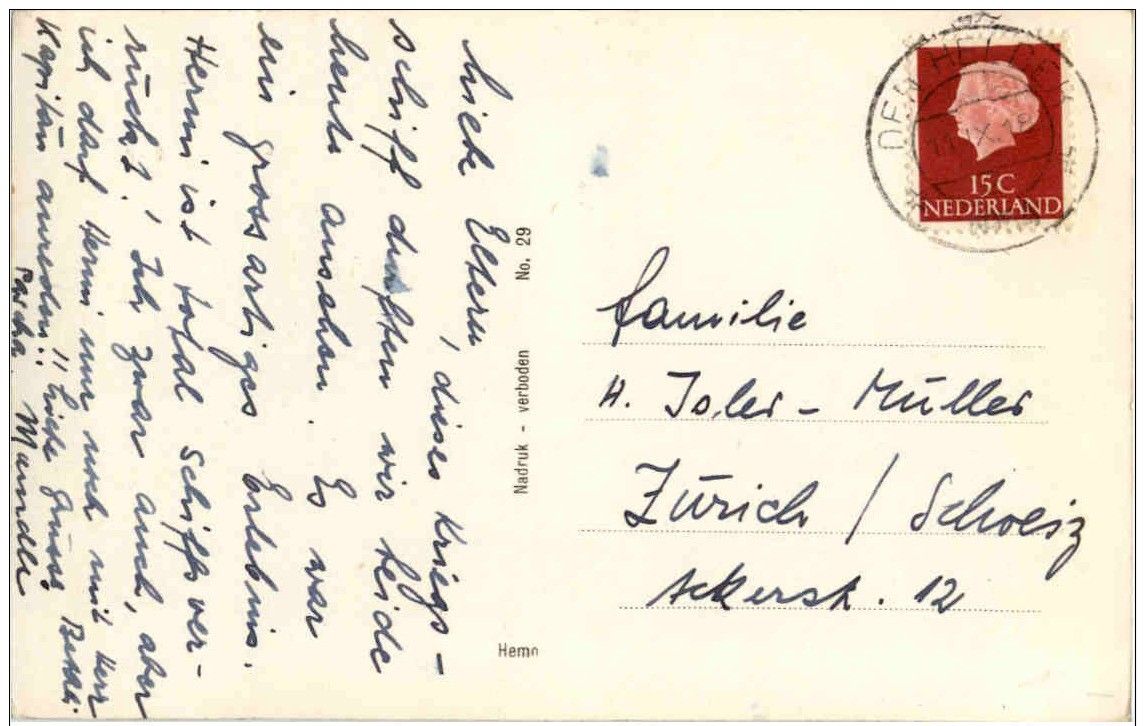 Liebe Eltern, dieses Kriegs-
schiff durften wir beide
heute ansehen. Es war
ein grossartiges Erlebnis.
Hermi ist total schiffsver-
rückt! Ich zwar auch, aber
ich darf Hermi nur noch mit Herr
Kapitän anreden!! Liebe Grüsse
Pascha
Nadruk - verboden No. 29
Hemo
DEN HELDER
15 C
NEDERLAND
Familie
H. Isler - Müller
Zürich / Schweiz
Ackerstr. 12